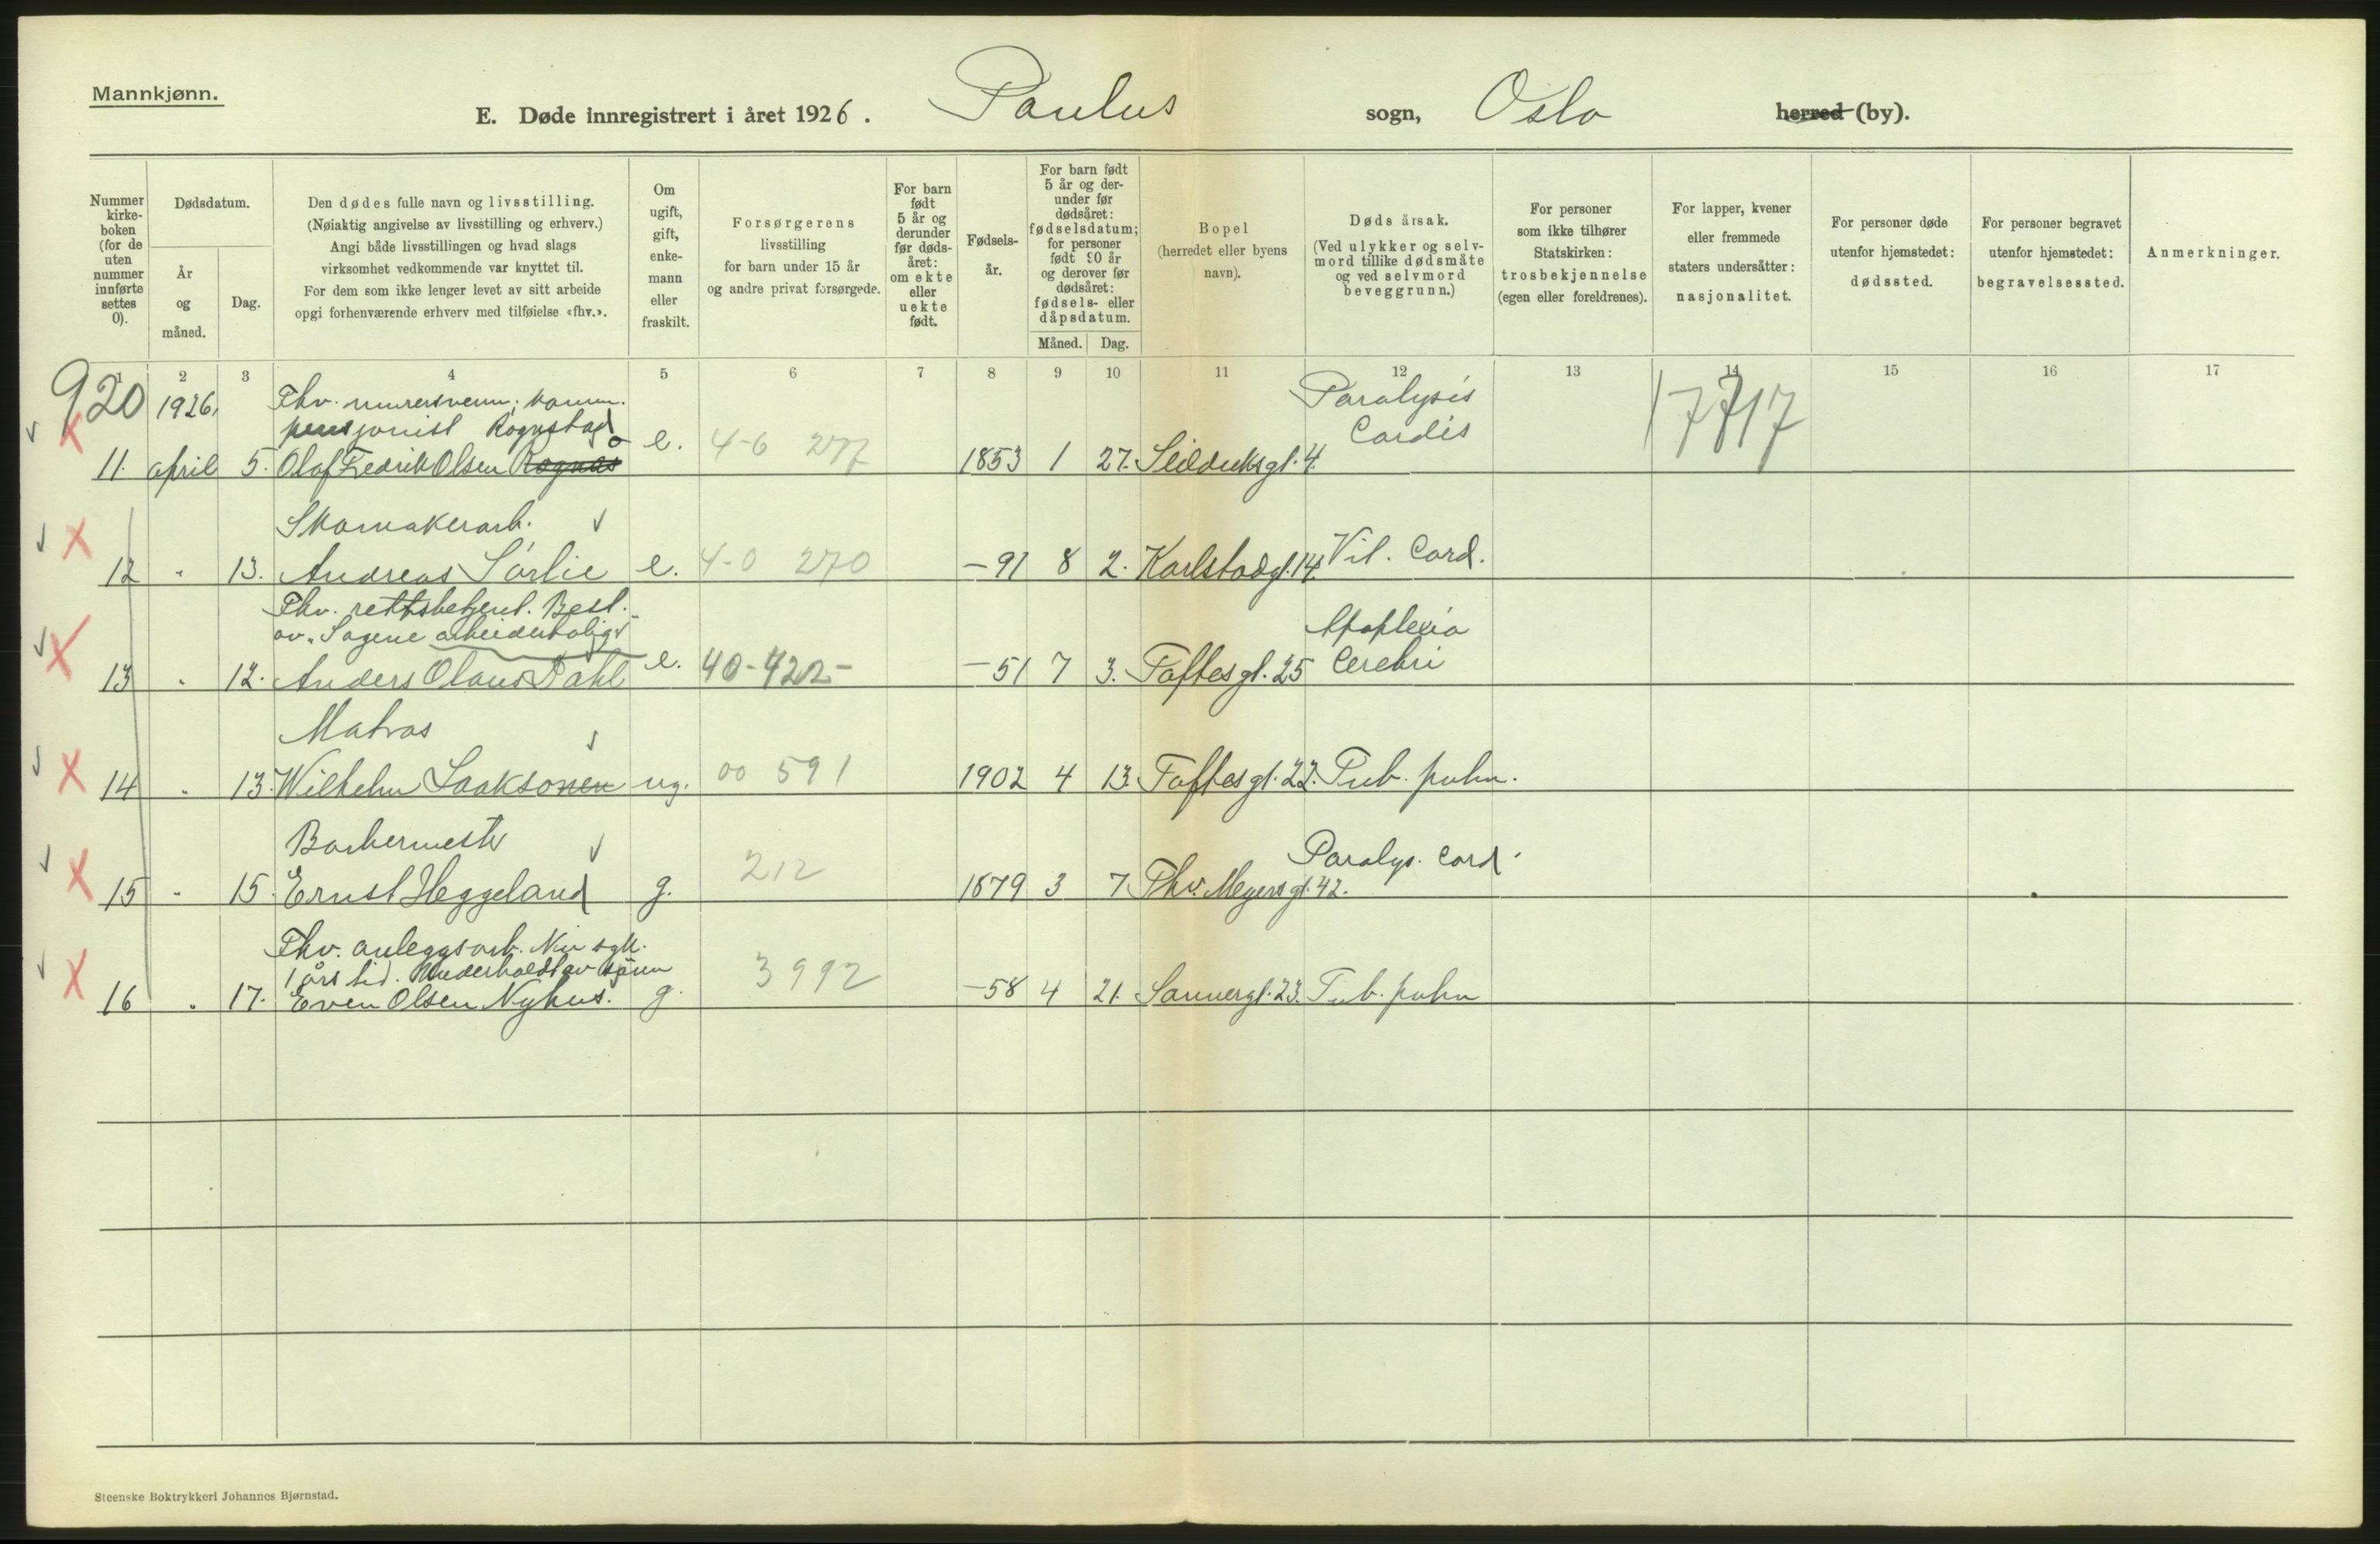 Mannkjønn.
E. Døde innregistrert i året 1926. Paulus sogn, Oslo herred (by).
Nummer kirke- boken (for de uten nummer innførte settes 0).
Dødsdatum.
År og måned.
Dag.
Den dødes fulle navn og livsstilling.
(Nøiaktig angivelse av livsstilling og erhverv.)
Angi både livsstillingen og hvad slags
virksomhet vedkommende var knyttet til.
For dem som ikke lenger levet av sitt arbeide
opgi forhenværende erhverv med tilføielse «fhv.».
Om ugift, gift, enke- mann eller fraskilt.
Forsørgerens
livsstilling
for barn under 15 år
og andre privat forsørgede.
For barn født 5 år og derunder før døds- året: om ekte eller uekte født.
Fødsels- år.
For barn født 5 år og der- under før dødsåret: fødselsdatum; for personer født 90 år og derover før dødsåret: fødsels- eller dåpsdatum.
Måned. Dag.
Bopel
(herredet eller byens
navn).
Dødsårsak.
(Ved ulykker og selv-
mord tillike dødsmåte
og ved selvmord
beveggrunn.)
For personer
som ikke tilhører
Statskirken:
trosbekjennelse
(egen eller foreldrenes).
For lapper, kvener
eller fremmede
staters undersåtter:
nasjonalitet.
For personer døde
utenfor hjemstedet:
dødssted.
For personer begravet
utenfor hjemstedet:
begravelsessted.
Anmerkninger.
1 2 3 4 5 6 7 8 9 10 11 12 13 14 15 16 17
920 1926. Fhv. murersvenn; komm. Paralysis 17717
pensjonist Rognstad Cardis
11. april 5. Olaf Fredrik Olsen Rognås e. 4-6 277 1853 1 27. Seilduksgt. 4.
Skomakerarb.
12 " 13. Andreas Sørlie e. 4-0 270 -91 8 2. Karlstadgt. 14. Vit. Cord.
Fhv. rettsbetjent. Best. Apoplexia
av "Sagene arbeiderbolig" Cerebri
13 " 12. Anders Olaus Dahl e. 40-422- -51 7 3. Toftesgt. 25
Matros
14 " 13. Wilhelm Laaksonen ug. 00 591 1902 4 13. Toftesgt. 22. Tub. pulm.
Barbermester Paralys. Cord.
15 " 15. Ernst Heggeland g. 212 1879 3 7. Thv. Meyersgt. 42.
Fhv. anleggsarb. Nu syk
1 års tid. Underholdt av sønn
16 " 17. Even Olsen Nyhus. g. 3992 -58 4 21. Sannergt. 23. Tub. pulm
Steenske Boktrykkeri Johannes Bjørnstad.